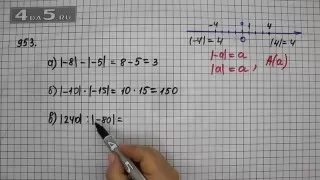 4DA5.RU
953.
-4 0 1 4
|-4|=4 |4|=4
а) |-8|-|-5|=8-5=3
|-a|=a
|a|=a, A(a)
б) |-10|·|-15|=10·15=150
в) |240|:|-80|=